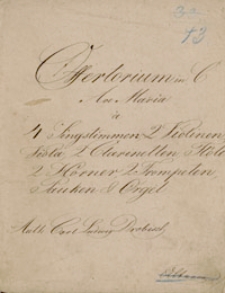 73
Offertorium in C
Ave Maria
à
4 Singstimmen 2 Violinen
Viola, 2 Clarinetten
2 Hörner 2 Trompeten
Pauken & Orgel
Auth. Carl Ludwig Drobisch